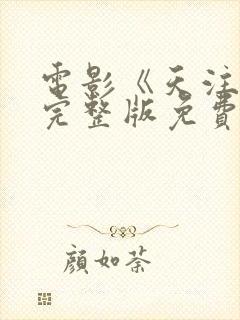 電影《天注
完整版免費
顔如荼